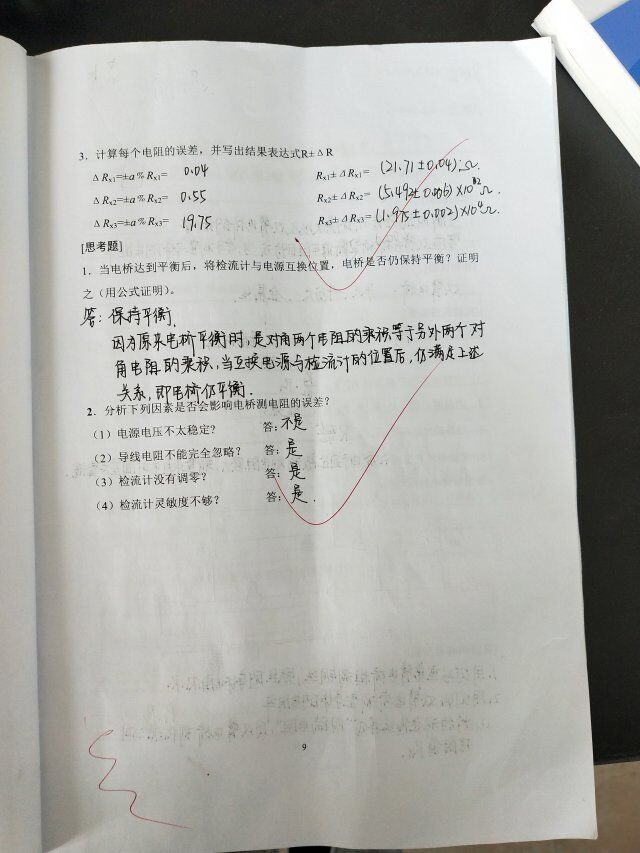 3. 计算每个电阻的误差，并写出结果表达式R±ΔR
ΔRx1=±a%Rx1= 0.04 Rx1±ΔRx1= (21.71±0.04)Ω.
ΔRx2=±a%Rx2= 0.55 Rx2±ΔRx2= (5.492±0.006)×10²Ω.
ΔRx3=±a%Rx3= 19.75 Rx3±ΔRx3= (1.975±0.002)×10⁴Ω.
[思考题]
1. 当电桥达到平衡后，将检流计与电源互换位置，电桥是否仍保持平衡？证明
之（用公式证明）。
答：保持平衡.
因为原来电桥平衡时，是对角两个电阻的乘积等于另外两个对
角电阻的乘积，当互换电源与检流计的位置后，仍满足上述
关系，即电桥仍平衡.
2. 分析下列因素是否会影响电桥测电阻的误差？
（1）电源电压不太稳定？ 答：不是
（2）导线电阻不能完全忽略？ 答：是
（3）检流计没有调零？ 答：是
（4）检流计灵敏度不够？ 答：是.
9